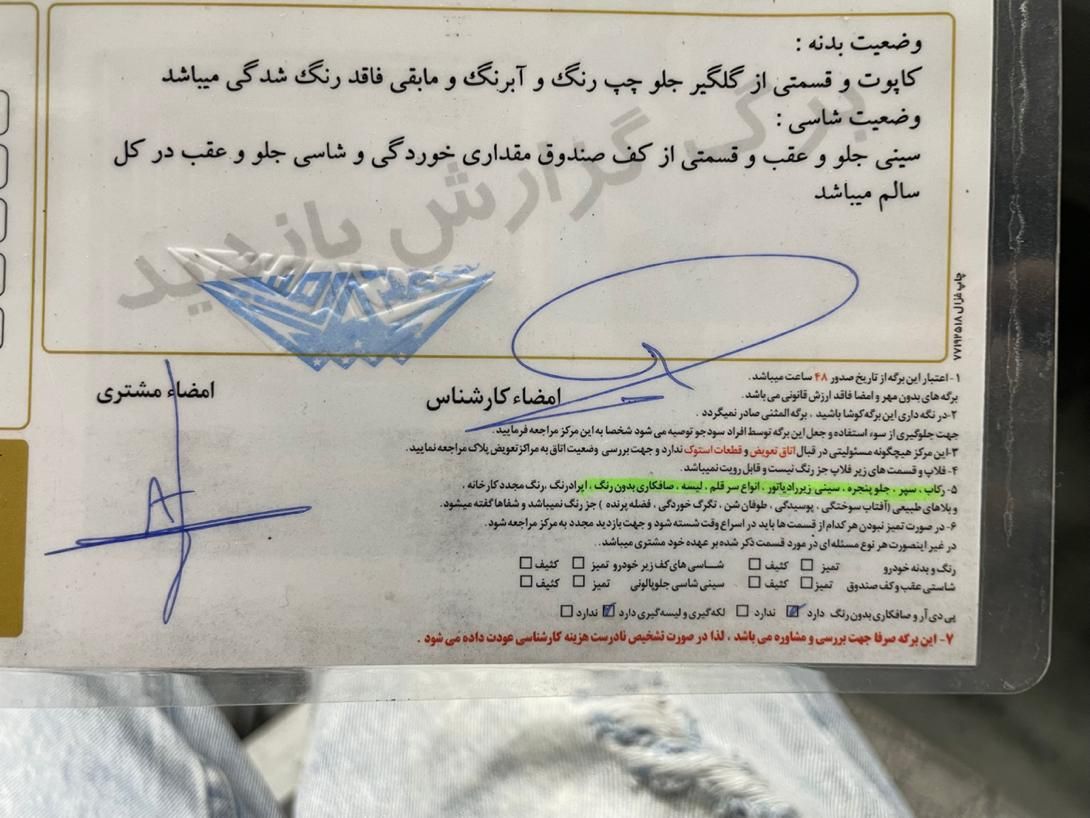 وضعیت بدنه :
کاپوت و قسمتی از گلگیر جلو چپ رنگ و آبرنگ و مابقی فاقد رنگ شدگی میباشد
وضعیت شاسی :
سینی جلو و عقب و قسمتی از کف صندوق مقداری خوردگی و شاسی جلو و عقب در کل
سالم میباشد
برگ گزارش بازدید
چاپ غزال ۷۷۱۹۲۵۱۸
امضاء کارشناس
امضاء مشتری
۱- اعتبار این برگه از تاریخ صدور ۴۸ ساعت میباشد.
برگه های بدون مهر و امضا فاقد ارزش قانونی می باشد.
۲-در نگه داری این برگه کوشا باشید ، برگه المثنی صادر نمیگردد .
جهت جلوگیری از سوء استفاده و جعل این برگه توسط افراد سودجو توصیه می شود شخصا به این مرکز مراجعه فرمایید.
۳-این مرکز هیچگونه مسئولیتی در قبال اتاق تعویض و قطعات استوک ندارد و جهت بررسی وضعیت اتاق به مراکز تعویض پلاک مراجعه نمایید.
۴- قلاب و قسمت های زیر قلاب جز رنگ نیست و قابل رویت نمیباشد.
۵- رکاب ، سپر ، جلو پنجره ، سینی زیر رادیاتور ، انواع سر قلم ، لیسه ، صافکاری بدون رنگ ، ایرادرنگ ،رنگ مجدد کارخانه ،
و بلاهای طبیعی (آفتاب سوختگی ، پوسیدگی ، طوفان شن ، تگرگ خوردگی ، فضله پرنده ) جز رنگ نمیباشد و شفاها گفته میشود.
۶- در صورت تمیز نبودن هر کدام از قسمت ها باید در اسراع وقت شسته شود و جهت بازدید مجدد به مرکز مراجعه شود.
در غیر اینصورت هر نوع مسئله ای در مورد قسمت ذکر شده بر عهده خود مشتری میباشد.
رنگ و بدنه خودرو تمیز کثیف شاسی های کف زیر خودرو تمیز کثیف
شاستی عقب و کف صندوق تمیز کثیف سینی شاسی جلوپالونی تمیز کثیف
پی دی آر و صافکاری بدون رنگ دارد ندارد لکه گیری و لیسه گیری دارد ندارد
۷- این برگه صرفا جهت بررسی و مشاوره می باشد ، لذا در صورت تشخیص نادرست هزینه کارشناسی عودت داده می شود .